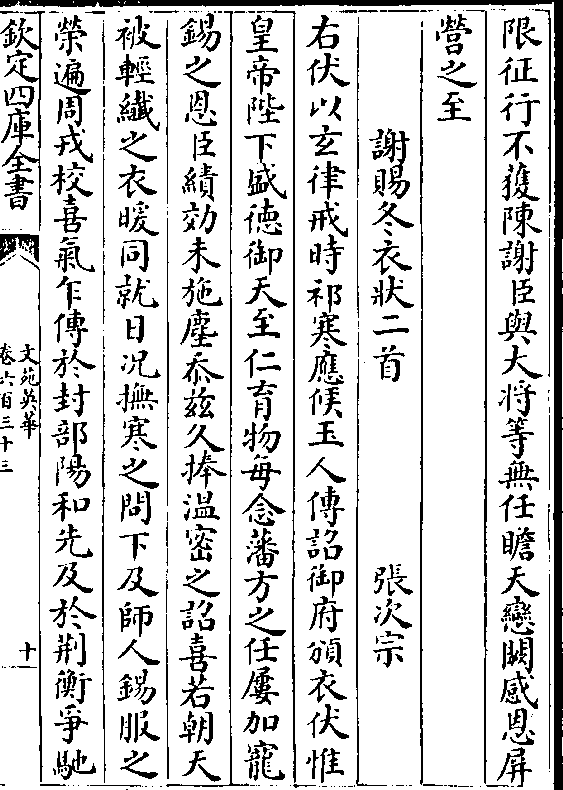 限征行不獲陳謝臣與大将等無任瞻天戀闕感恩屏
營之至
謝賜冬衣狀二首　張次宗
右伏以玄律戒時祁寒應候玉人傳詔御府頒衣伏惟
皇帝陛下盛徳御天至仁育物每念藩方之任屢加寵
錫之恩臣績効未施塵忝兹久捧温密之詔喜若朝天
被輕纎之衣暖同就日况撫寒之問下及師人錫服之
榮遍周戎校喜氣乍傳於封部陽和先及於荆衡爭馳
欽定四庫全書
文苑英華
卷六百三十三
十